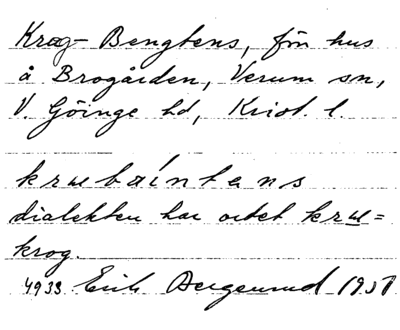 Krog-Bengtens, fön hus
å Brogården, Verum sn,
V. Göinge hd, Krist. l.
krɯbáintɘns
dialekten har ordet krɯ=
krog.
4933 Erik